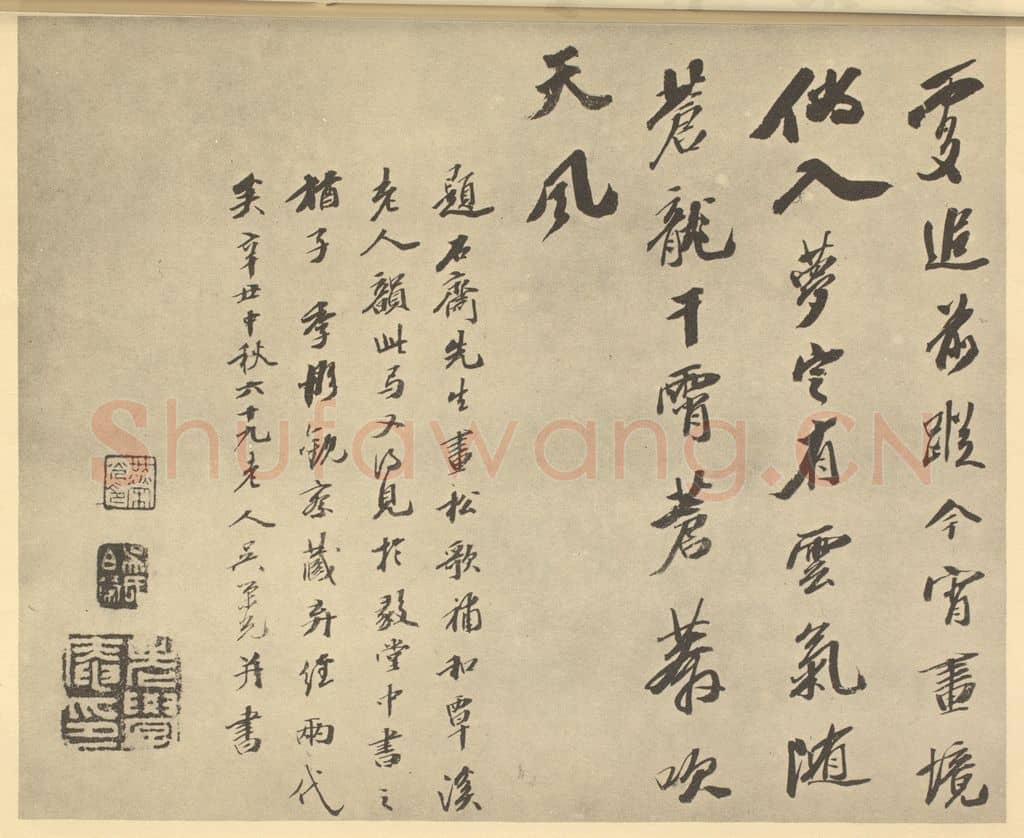 追前蹤今宵畫境
倘入夢定有雲氣随
蒼龍干霄蒼莽吹
天風
題石齋先生畫松歌補和覃溪
老人韻此又得見於毅堂中書之
猶子季彤觀察藏弆經兩代
矣辛丑中秋六十九老人吳榮光并書
Shufawang.CN